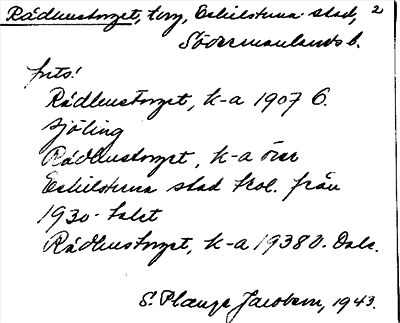 Rådhustorget, torg, Eskilstuna stad, 2
Södermanlands l.
forts!
Rådhustorget, k-a 1907 G.
Sjöling
Rådhustorget, k-a över
Eskilstuna stad kol. från
1930-talet
Rådhustorget, k-a 1938 O. Dahl.
S. Plauge Jacobson, 1943.